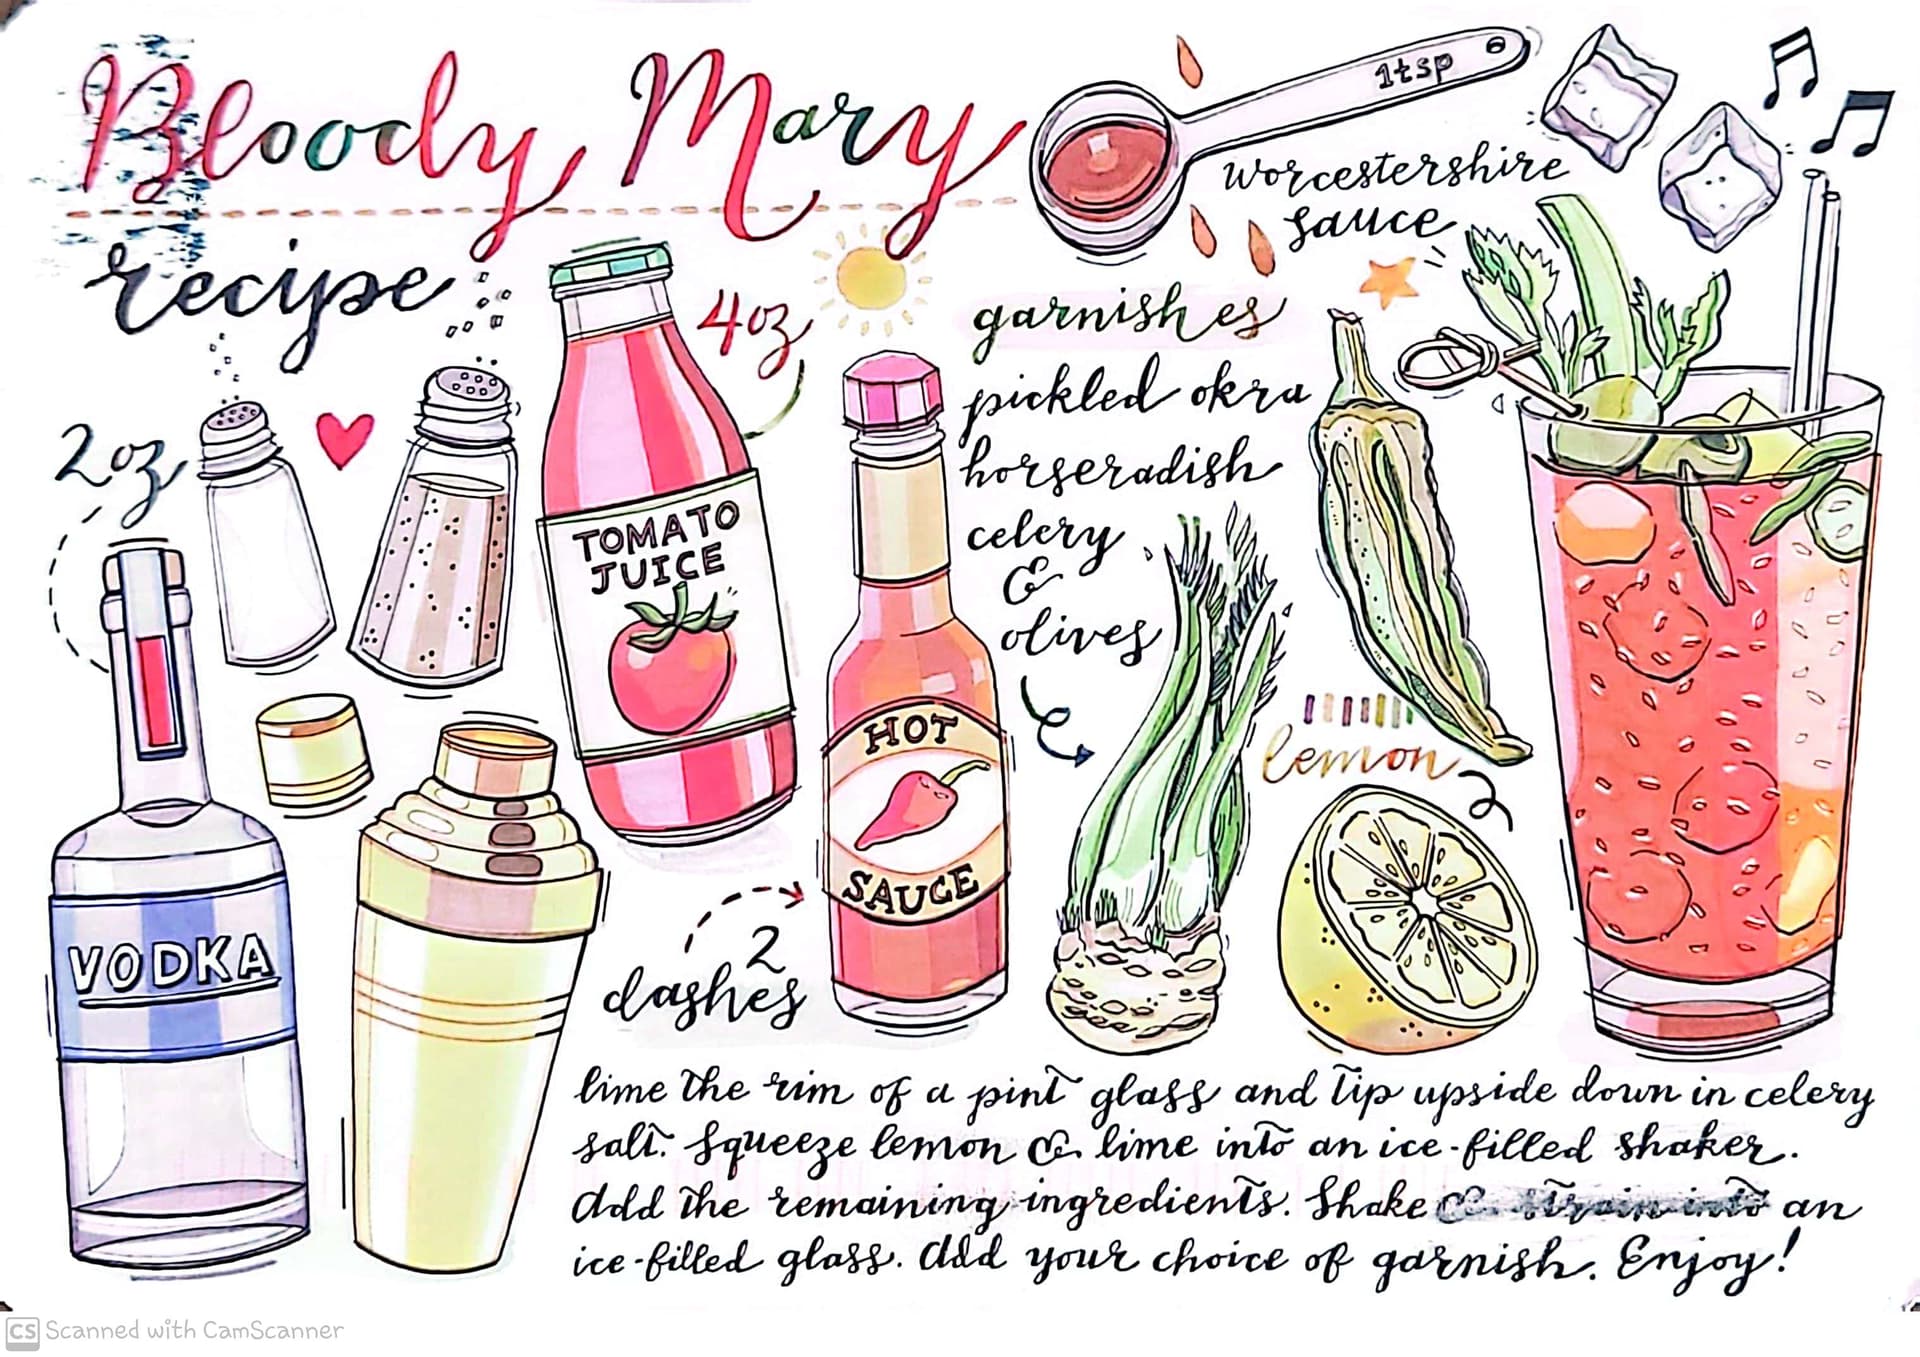 Bloody Mary
recipe
1tsp
worcestershire
sauce
2oz
4oz
garnishes
pickled okra
horseradish
celery
&
olives
TOMATO
JUICE
HOT
SAUCE
lemon
VODKA
2
dashes
lime the rim of a pint glass and tip upside down in celery
salt. Squeeze lemon & lime into an ice-filled shaker.
Add the remaining ingredients. Shake & strain into an
ice-filled glass. Add your choice of garnish. Enjoy!
CS Scanned with CamScanner